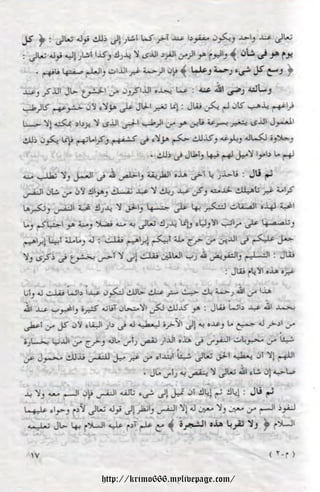 تعالى عند واحد ويكون مفقودا عند آخر كما أشار إلى ذلك قوله تعالى: ﴿ كل
يوم هو في شأن ﴾ واليوم هو الزمن الفرد الذى لا يدرك وكذا أشار إليه قوله تعالى:
﴿ وسع كل شيء رحمة وعلما ﴾ فإن الرحمة غير الذات والعلم صفتها فافهم.
وسألته رضى الله عنه: عما يجده الذاكرون من الخشوع حال الذكر وعند
فراغهم يذهب كأن لم يكن فقال: إنما تغير الحال على هؤلاء لأن خشوعهم كالرطب
المعلول الذى يتغير بسرعة فأين هو من الرطب الجنى الذى لا يزداد بمكثه إلا حسنا
وحلاوة لكماله وبلوغه وكذلك حكم هؤلاء فى كشفهم وكراماتهم فإنما يكون ذلك
لهم ما داموا لأميل لهم فيها وأطال فى ذلك.
ثم قال: فاحذر يا أخى هذه الطريقة وأخلص لله فى العمل ولا تطلب منه
كرامة غير تأهيلك لخدمته وكن عبد ربك لا عبد نفسك وهواك لأن من شأن النفس
المحبة لهذه الصفات لتتكبر بها على جنسها والحق لا يدرك بمحبة النفس وتكبرها
وتلصصها على مراتب الأولياء وإنما يدرك تعالى به منه فضلا ومنة هو اجتباكم وما
جعل عليكم فى الدين من حرج ملة أبيكم إبراهيم فقلت: له وماملة أبينا إبراهيم
فقال: التسليم والتفويض لله رب العالمين فقلت إنى لا أحس بخشوع فى ذكرى ولا
غيره هذه الأيام فقال:
هذا من الله رحمة بك حيث ستر عنك حالك لتكون عبداً دائما فقلت له وأنا
بحمد الله عبد دائما فقال: هو كذلك لكن الامتحان آفاته كثيرة والمحبوب عند الله
من ادخر له جميع ما وعده به إلى الآخرة ليعطيه له فى دار البقاء لأن كل من أعطى
شيئا من محبوبات النفوس فى هذه الدار نقص رأس ماله وخرج من الدنيا بخسارة
اللهم إلا أن يعطيه الحق تعالى شيئا ابتداء من غير ميل للنفس فذلك محمول عن
صاحبه إن شاء الله تعالى لا ينقص به رأس مال.
ثم قال: إياك ثم إياك أن تميل إلى شيء تألفه النفس فإن السم معه ولا بد
لنفوذ السم من معين ولا معين له إلا النفس وانظر إلى قوله تعالى لآدم وحواء عليهما
السلام ﴿ ولا تقربا هذه الشجرة ﴾ مع علم آدم عليه السلام بها حال تعليمه
(م-٢) ١٧
http://krimo666.mylivepage.com/